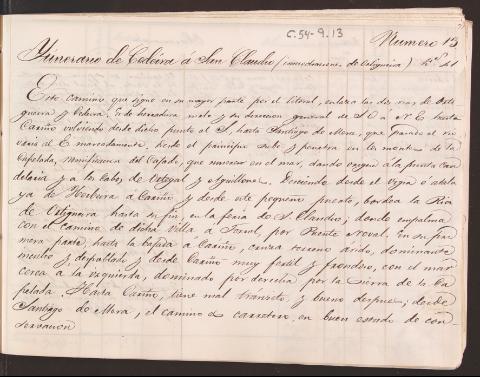 C.54-9.13
Numero 13
Ytinerario de Cedeira á San Claudio (inmediaciones de Ortigueira)
Este camino que sigue en su mayor parte por el litoral, enlaza las dos rias de Orti
gueira y Cedeira. Es de herradura, malo y su direccion general de S.O. a N.E. hasta
Cariño volviendo desde dicho punto al S. hasta Santiago de Mera, que
al E. marcadamente. Desde el principio sube y penetra en los montes de la
Capelada, ramificacion del Cajado, que en el mar, dando origen á la punta Can
delaria y a los Cabos de Ortegal y Aguillones. desde el Vigia ó atala
ya de Herbeira a Cariño y desde este pequeño puerto, bordea la Ria
de Ortigueira hasta su fin, en la feria de S. Claudio; donde empalma
con el camino de dicha villa a Ferrol, por Puente Neval. En su pri
mera parte, hasta la bajada a Cariño, cruza terreno árido, dominante
inculto y despoblado y desde Cariño muy fertil y frondoso, con el mar
cerca a la izquierda, dominado por derecha por la sierra de la Ca
pelada. Hasta Cariño, tiene mal transito, y bueno despues; desde
Santiago de Mera, el camino es carretero, en buen estado de con-
servacion